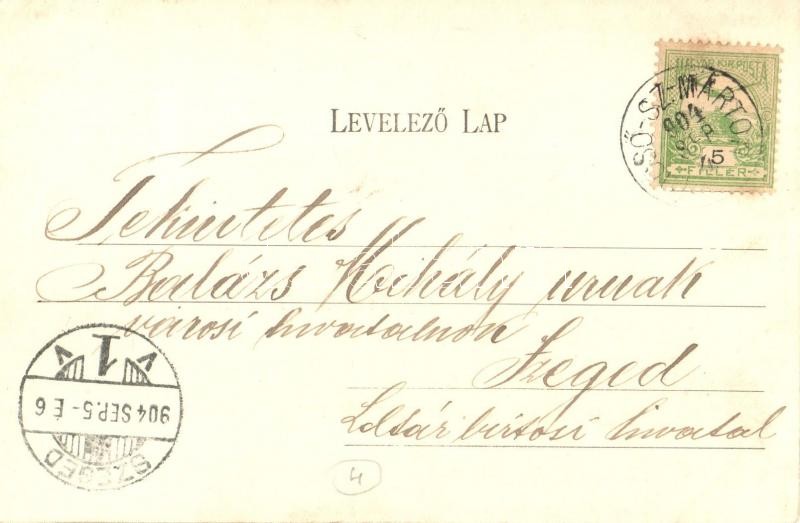 MAGYAR KIR. POSTA
SŐ-SZ-MÁRTO
904
5
FILLÉR
LEVELEZŐ LAP
Tekintetes
Balázs Mihály urnak
városi hivatalnok
Szeged
hivatal
V 1 V
904 SEP. 5 - E 6
SZEGED
4